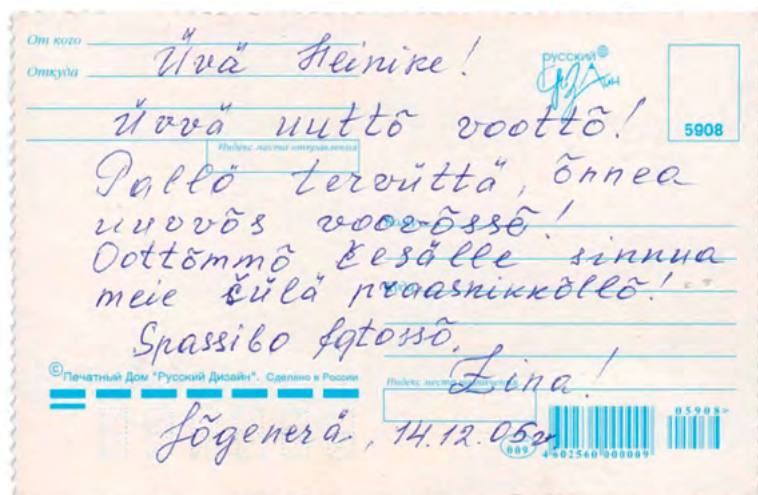 От кого
Üvä Heinike!
Откуда
русский
Дизайн
5908
Üvvä uuttõ voottõ!
Индекс места отправления
Pallo tervüttä, õnnea
uuvvõs voovvõssõ!
Oottõmmõ kesälle sinnua
meie čülä praasnikkõllõ!
Spassibo fotossõ.
Zina!
© Печатный Дом "Русский Дизайн". Сделано в России
Индекс места назначения
Jõgeperä, 14.12.05г
009
4 602560 000009
05908>